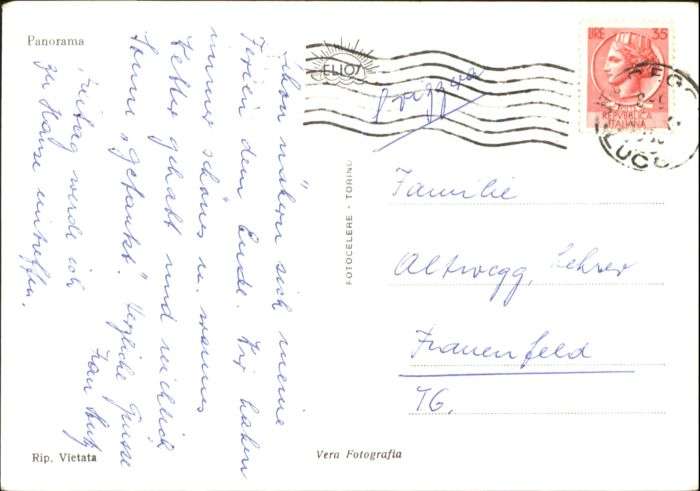 Panorama
Schon nähern sich meine
Ferien dem Ende. Wir haben
immer schönes u. warmes
Wetter gehabt und reichlich
Sonne „getankt". Herzliche Grüsse
Freitag werde ich
zu Hause eintreffen.
Rip. Vietata
ELIOS
FOTOCELERE - TORINO
Vera Fotografia
LIRE 35
REPVBBLICA
ITALIANA
Svizzera
Familie
Altwegg, Lehrer
Frauenfeld
TG.